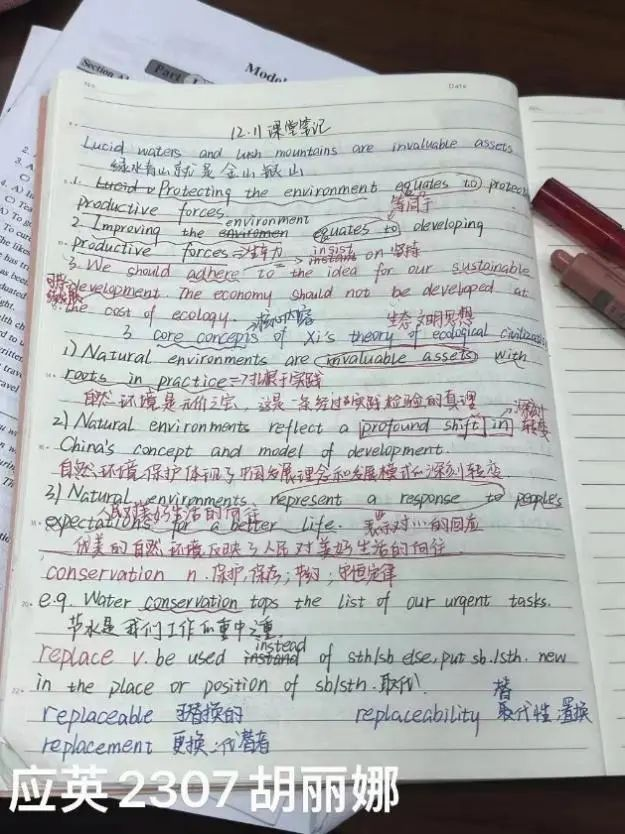 Model
Part
Section A
Date
12.11课堂笔记
Lucid waters and lush mountains are invaluable assets
绿水青山就是金山银山
1. Lucid Protecting the environment equates to protect
等同于
productive forces
environment
2. Improving the enviromen equates to developing
productive forces ⇒生产力 → insist instant on 坚持
3. We should adhere to the idea for our sustainable
可持续发展
development. The economy should not be developed at
the cost of ecology. 核心内容 生态文明思想
3 core concepts of Xi's theory of ecological civilization
1) Natural environments are invaluable assets with
roots in practice ⇒扎根于实践
自然环境是无价之宝，这是一条经过实践检验的真理
2) Natural environments reflect a profound shift in → 深刻转变
China's concept and model of development.
自然环境保护体现了中国发展理念和发展模式的深刻转变
3) Natural environments represent a response to people's
人民对美好生活的向往
expectations for a better life. 表示对…的回应
优美的自然环境反映了人民对美好生活的向往
conservation n. 保护,保存;节约;守恒定律
e.g. Water conservation tops the list of our urgent tasks.
节水是我们工作的重中之重.
instead
replace v. be used instand of sth/sb else, put sb./sth. new
in the place or position of sb/sth. 取代
replaceable 可替换的 replaceability 替 取代性;置换
replacement 更换;代替者
应英2307胡丽娜